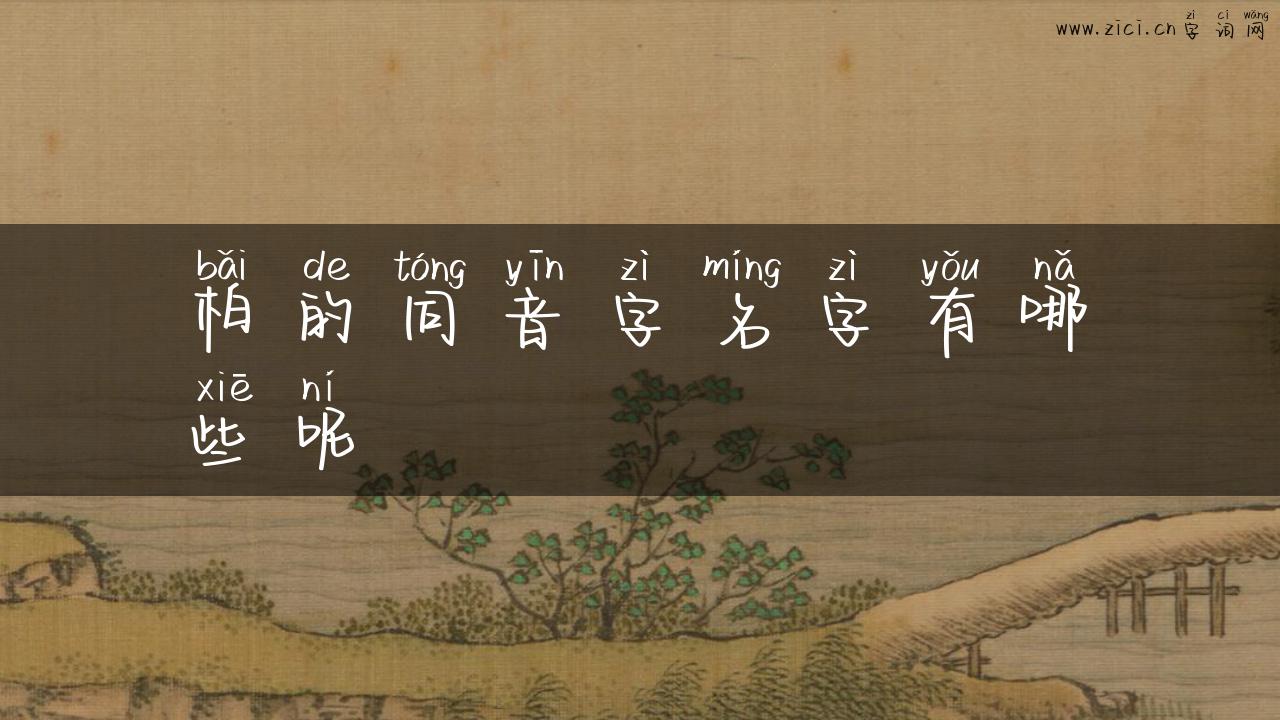 zì cí wǎng
www.zici.cn 字词网
bǎi de tóng yīn zì míng zì yǒu nǎ
柏的同音字名字有哪
xiē ní
些呢